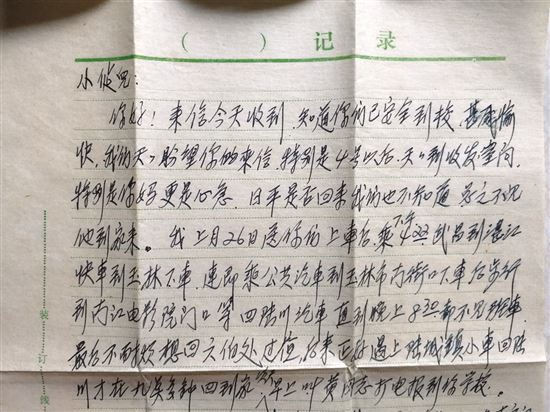 ( ) 记录
小俊儿:
你好!来信今天收到,知道你们已安全到校,甚感愉
快,我们天々盼望你的来信,特别是4号以后,天々到收发室问,
特别是你妈更是心急。日平是否回来我们也不知道,总之不见
他到家来。我上月26日送你们上车后,乘下午4:22武昌到湛江
快车到玉林下车,连即乘公共汽车到玉林市南街口下车后步行
到南江电影院门口等回陆川汽车,直到晚上8:30都不见班车
最后不耐烦想回六伯处过值,后来正好遇上陆城镇小车回陆
川才在九点多种回到家,早上叫黄同志打电报到你学校。
装订线